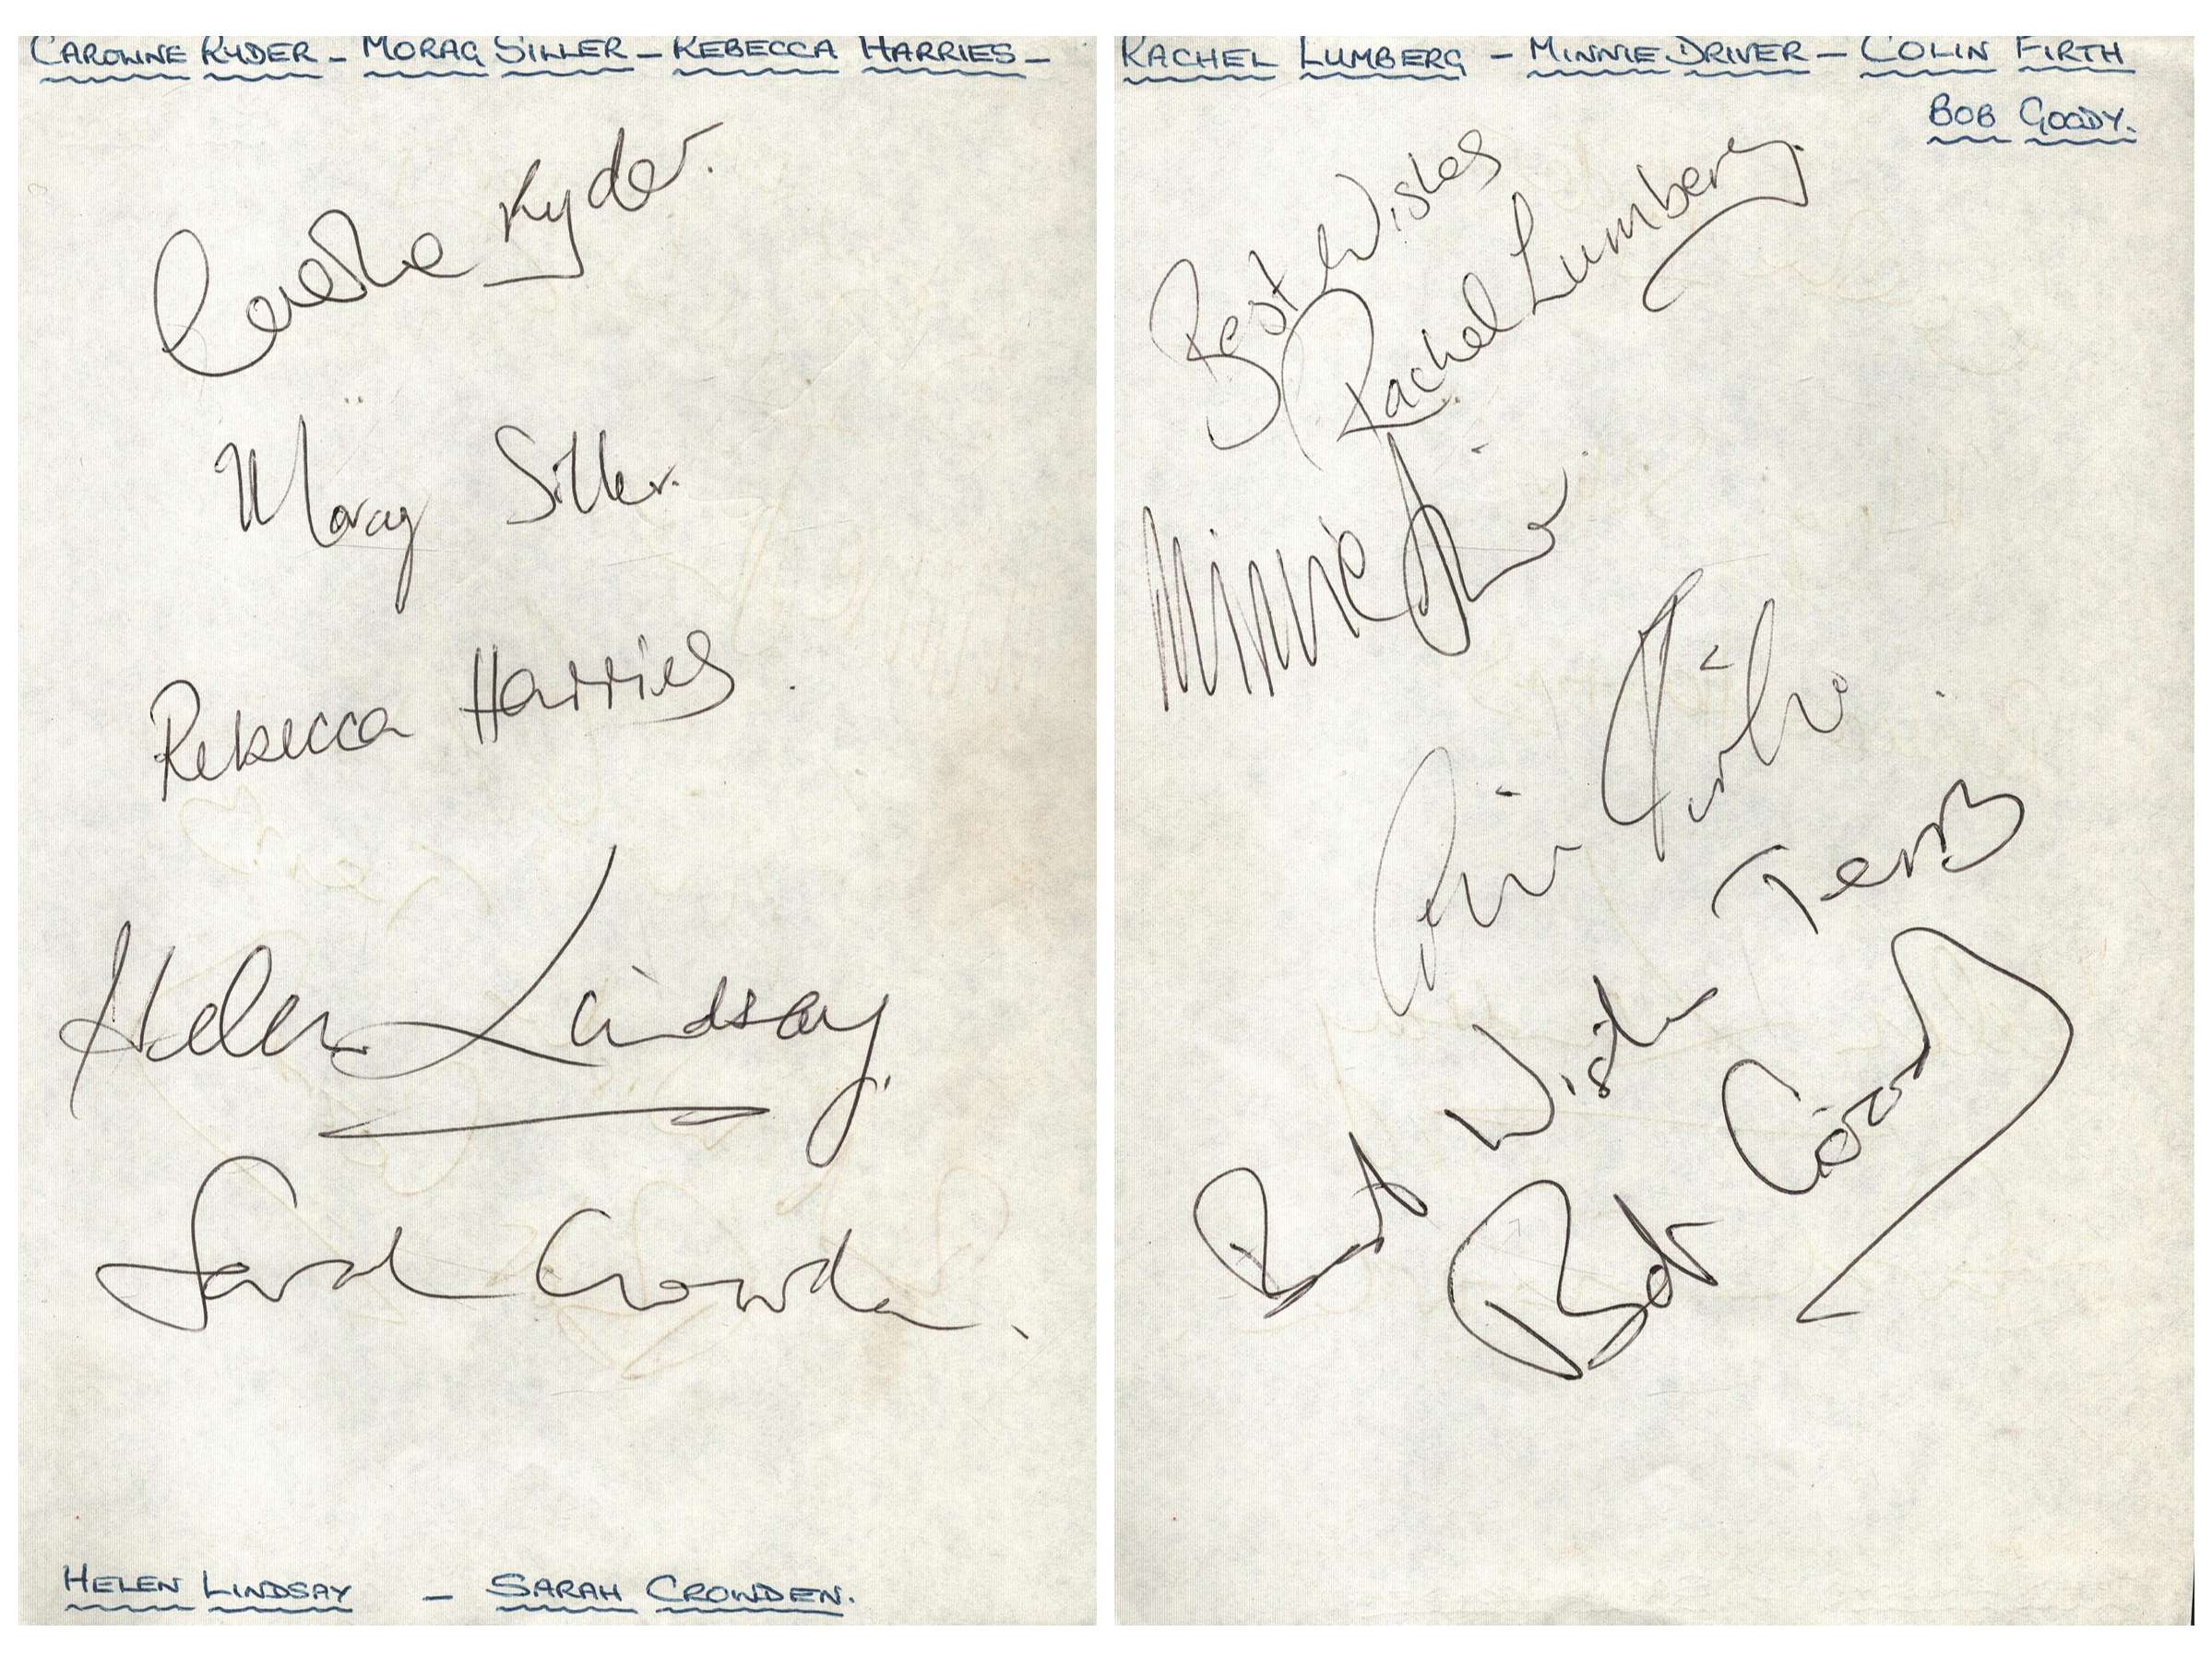 CAROLINE RYDER - MORAG SILLER - REBECCA HARRIES -
Caroline Ryder.
Morag Siller.
Rebecca Harries.
Helen Lindsay.
Sarah Crowden.
HELEN LINDSAY - SARAH CROWDEN.
RACHEL LUMBERG - MINNIE DRIVER - COLIN FIRTH
BOB GOODY.
Best Wishes
Rachel Lumberg.
Minnie Driver
Colin Firth.
Best Wishes Terry
Bob Goody